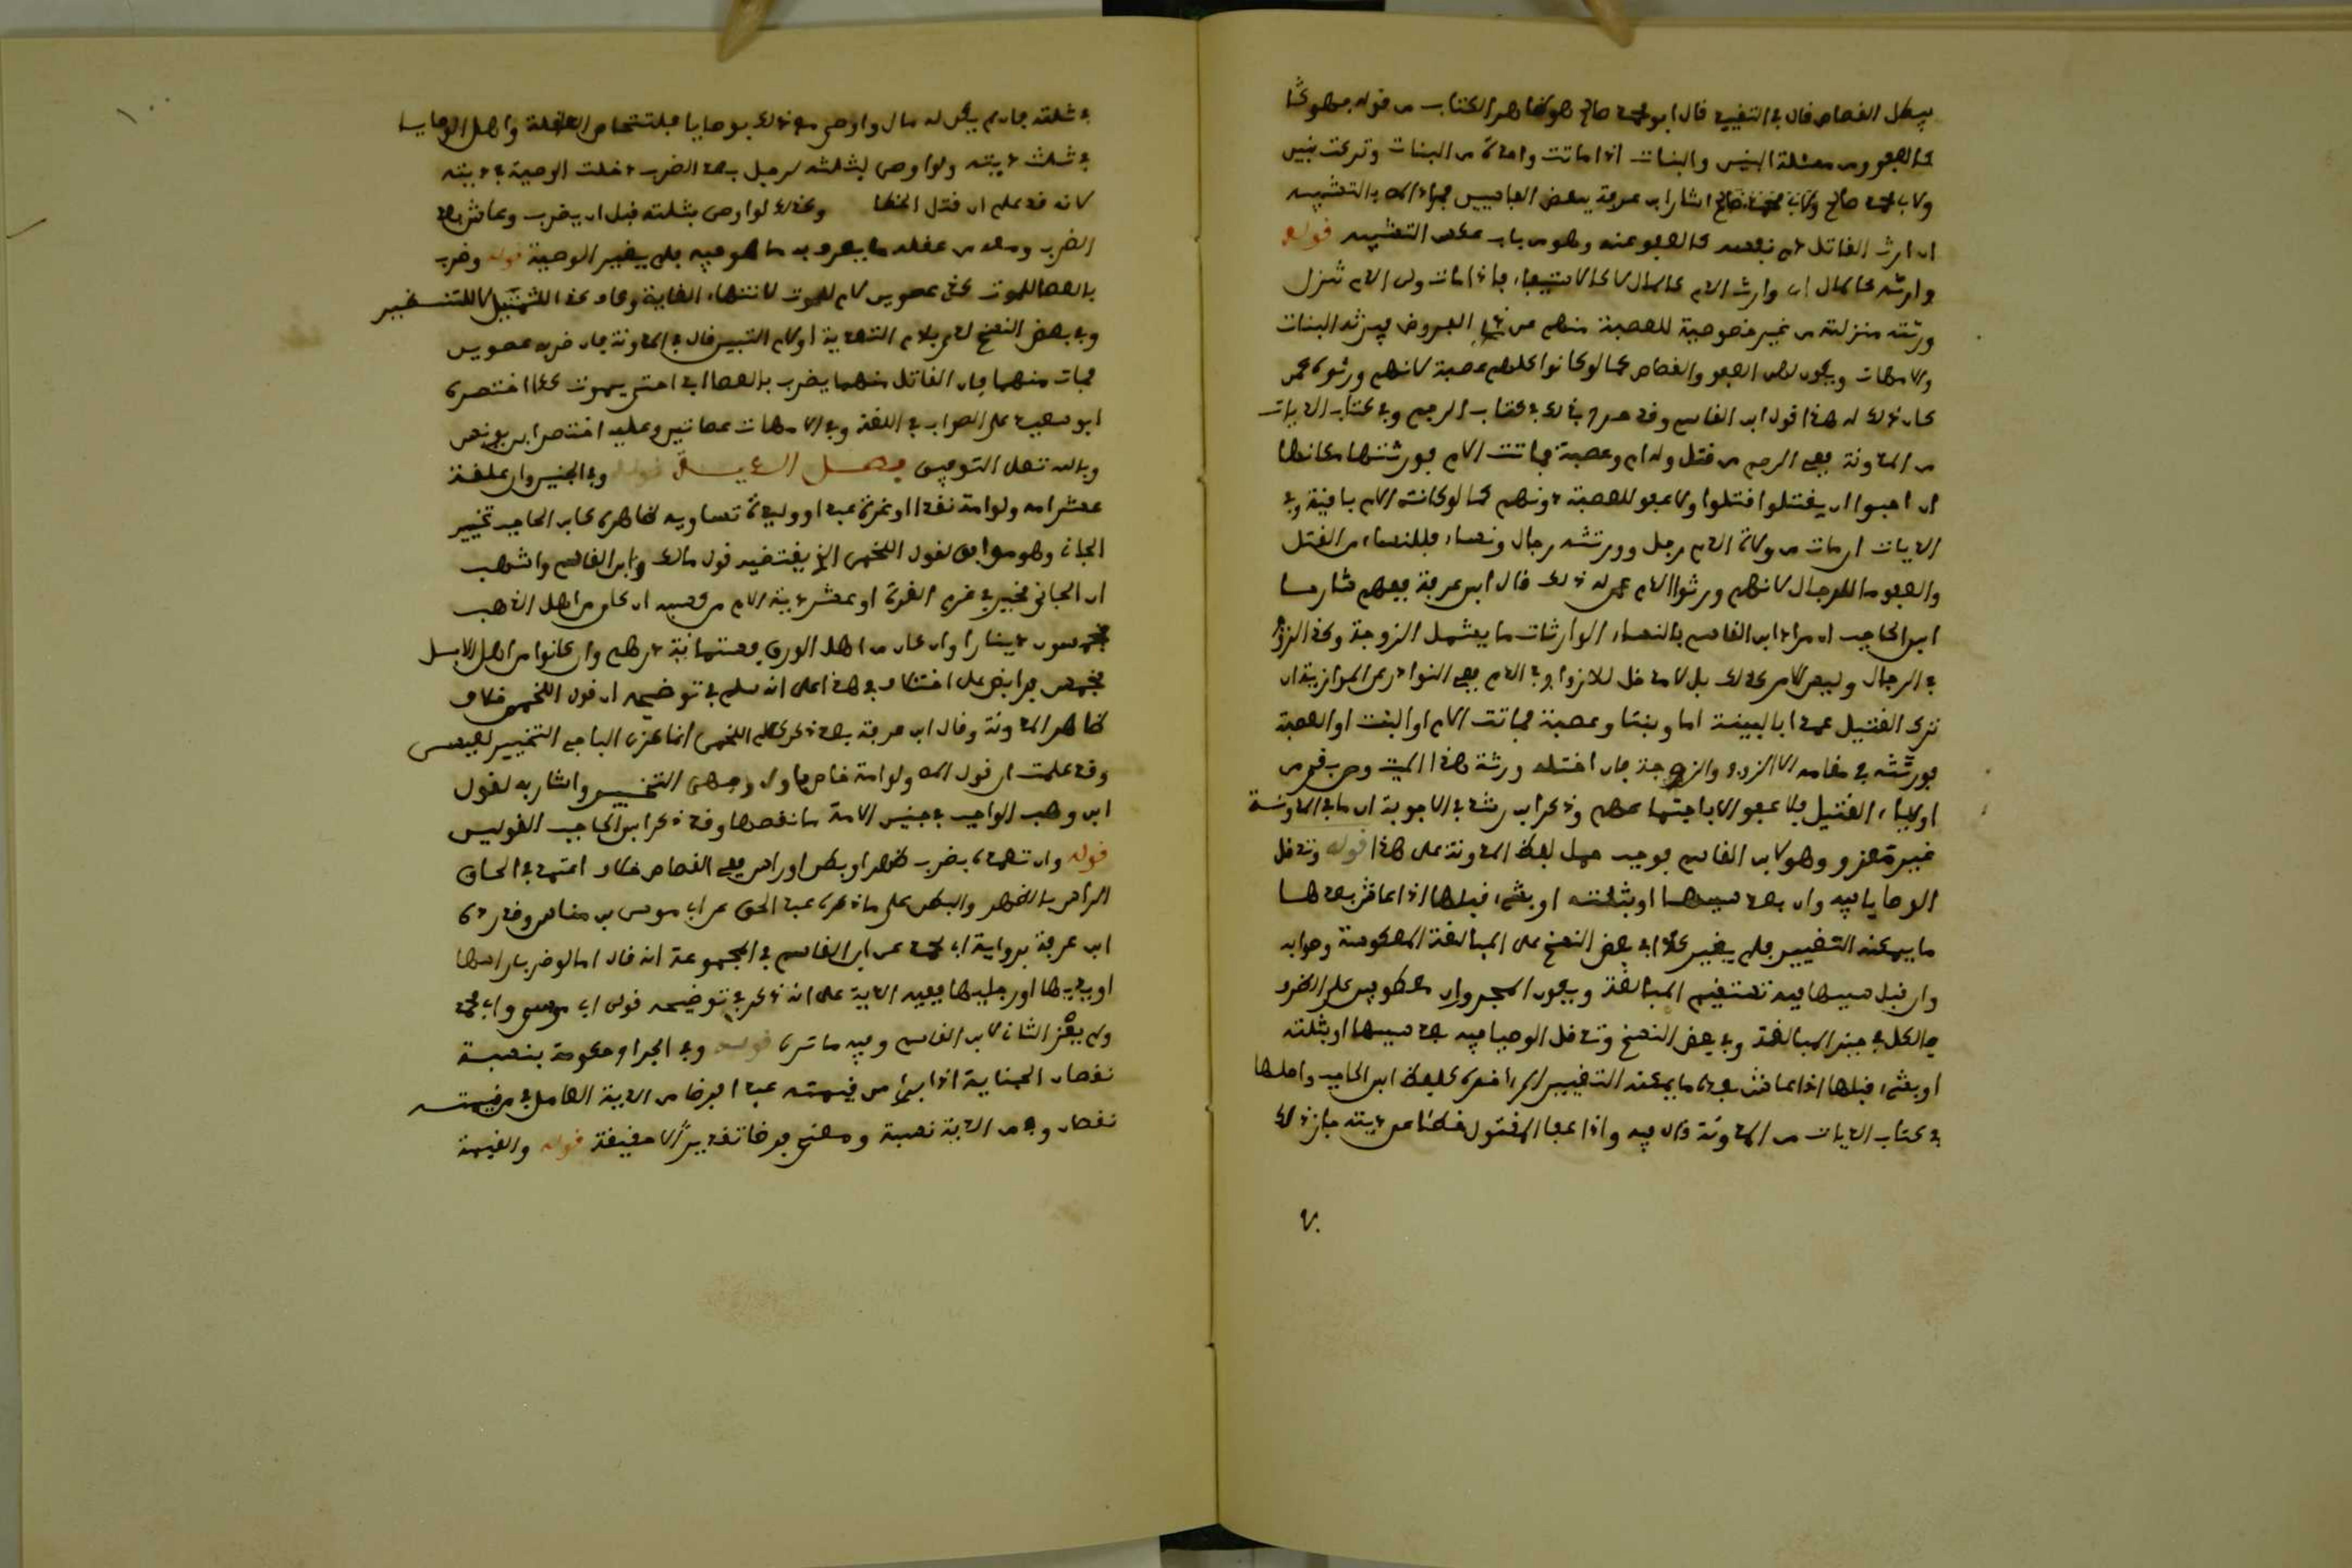 يبطل القصاص قال في التقييد قال أبو صالح هو ظاهر الكتاب من قوله
من مسئلة البنين والبنات اذا ماتت واحدة من البنات وتركت بنين
اشار ابن عرفة بعض
ان ارث القاتل نفسه كالعفو عنه وهو من باب عكس التشبيه قوله
وارثه كالمال اي وارث الدم كالمال لا كالاستيفاء فاذا مات ولي الدم تنزل
ورثته منزلته من غير خصوصية للعصبة منهم عن ذي الفروض فيرثه البنات
والامهات ويكون لهن العفو والقصاص كما لو كانوا كلهم عصبة لانهم ورثوه عمن
كان ذلك له هذا قول ابن القاسم وقد صرح بذلك في كتاب الرجم وفي كتاب الديات
من المدونة ففي الرجم من قتل وله ام وعصبة فماتت الام فورثتها مكانها
ان احبوا ان يقتلوا قتلوا ولا عفو للعصبة دونهم كما لو كانت الام باقية وفي
الديات ان مات من ولاة الدم رجل وورثته رجال ونساء فللنساء من القتل
والعفو ما للرجال لانهم ورثوا الدم عمن له ذلك قال ابن عرفة ففهم شارحا
ابن الحاجب ان مراد ابن القاسم بالنساء الوارثات ما يشمل الزوجة وكذا الزوج
في الرجال وليس الامر كذلك بل لا مدخل للازواج في الدم ففي النوادر عن الموازية ان
ترك القتيل عمدا بالبينة اما وبنتا وعصبة فماتت الام او البنت او العصبة
فورثته في مقامه الا الزوج والزوجة فان اختلف ورثة هذا الميت ومن بقي من
اولياء القتيل فلا عفو الا باجتماعهم وذكر ابن رشد في الاجوبة ان ما في المدونة
غير معزو وهو لابن القاسم فوجب حمل لفظ المدونة على هذا قوله وتدخل
الوصايا فيه وان بعد سببها او بثلثه او بشيء قبلها اذا عاش بعدها
ما يمكنه التغيير فلم يغير كذا في بعض النسخ على المبالغة المعكوسة وصوابه
وان قبل سببها فبه تستقيم المبالغة ويكون المجروران معطوفين على الظرف
فالكل في حيز المبالغة وفي بعض النسخ وتدخل الوصايا فيه بعد سببها او بثلثه
او بشيء قبلها اذا عاش بعدها ما يمكنه التغيير كلفظ ابن الحاجب واصلها
في كتاب الديات من المدونة قال فيه واذا عفا المقتول خطأ عن ديته جاز ذلك
في ثلثه فان لم يكن له مال واوصى مع ذلك بوصايا فلتتحاص العاقلة واهل الوصايا
في ثلث ديته ولو اوصى بثلثه لرجل بعد الضرب دخلت الوصية في ديته
لانه قد علم ان قتل الخطأ وكذلك لو اوصى بثلثه قبل ان يضرب وعاش بعد
الضرب ومعه من عقله ما يعرف به ما هو فيه فلم يغير الوصية قوله وضرب
بالعصا للموت كذي عصوين لام للموت لانتهاء الغاية وكاف كذي للتمثيل لا للتشبيه
وفي بعض النسخ لذي بلام التعدية او لام التبيين قال في المدونة فان ضربه عصوين
فمات منهما فان القاتل منهما يضرب بالعصا ابدا حتى يموت كذا اختصره
ابو سعيد على الصواب في اللغة وفي الامهات عصاتين وعليه اختصر ابن يونس
وبالله تعالى التوفيق فصل الدية قوله وفي الجنين وان علقة
عشر امه ولو امة نقدا او غرة عبد او وليدة تساويه ظاهره كابن الحاجب تخيير
الجاني وهو موافق لقول اللخمي الذي يقتضيه قول مالك وابن القاسم واشهب
ان الجاني مخير في غرم الغرة او عشر دية الام من كسبه ان كان من اهل الذهب
خمسون دينارا وان كان من اهل الورق فستمائة درهم وان كانوا من اهل الابل
فخمس فرائض على اختلاف في هذا على انه سلم في توضيحه ان قول اللخمي خلاف
ظاهر المدونة وقال ابن عرفة بعد ذكر كلام اللخمي انما عزى الباجي التخيير لعيسى
وقد علمت ان قوله ولو امة خاص بالاول وجهي التخيير واشار به لقول
ابن وهب الواجب في جنين الامة ما نقصها وقد ذكر ابن الحاجب القولين
قوله وان تعمده بضرب ظهر او بطن او راس ففي القصاص خلاف اعتمد في الحاق
الراس بالظهر والبطن على ما ذكره عبد الحق عن ابي موسى بن مناس وقد رده
ابن عرفة برواية ابي محمد عن ابن القاسم في المجموعة انه قال اما لو ضرب راسها
او يديها او رجليها ففيه الدية على انه ذكر في توضيحه قولي ابي موسى وابي محمد
ولم يعز الثاني لابن القاسم وفيه ما ترى قوله وفي الجراح حكومة بنسبة
نقصان الجناية اذا برئ من قيمته عبدا فرضا من الدية الحاصل في قيمته
نقصان وفي من الدية نسبة ومعنى فرضا تقديرا لا حقيقة قوله والقيمة